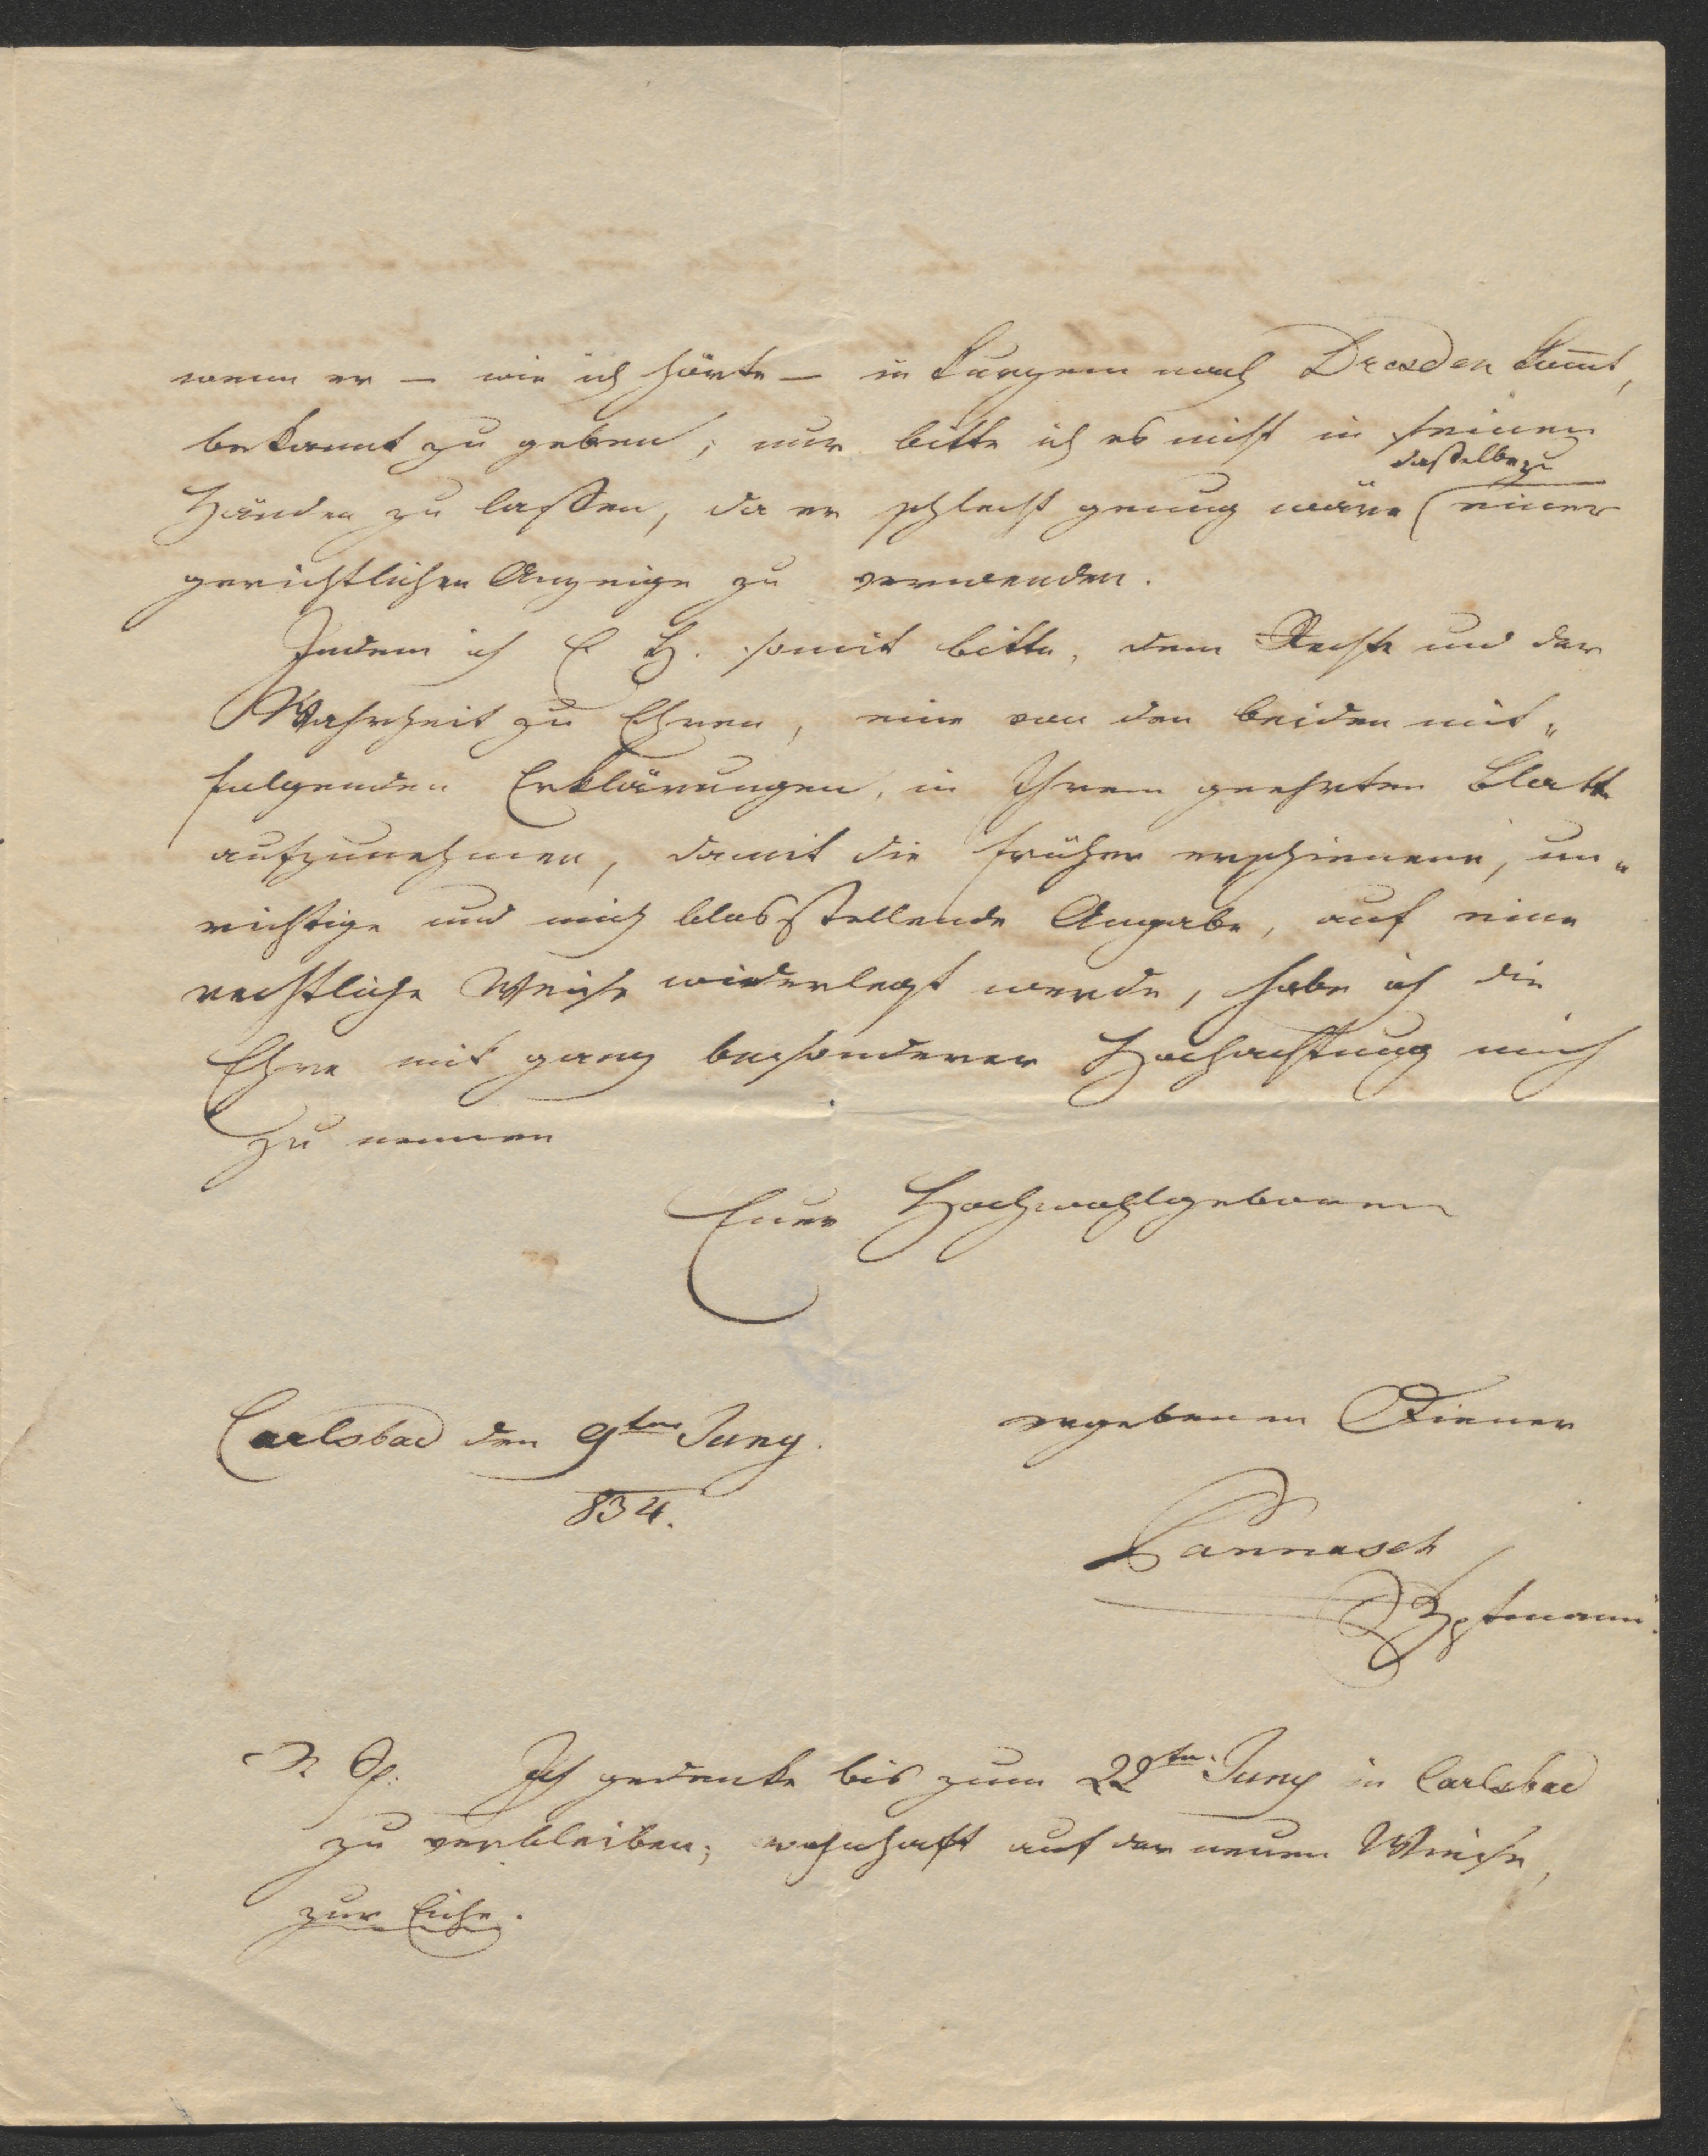 wenn er – wie ich hörte – in Kurzem nach Dresden kom̅t,
bekannt zu geben; nur bitte ich es nicht in seinen
dasselbe zu
Händen zu lassen, da er schlecht genug wäre (einer
gerichtlichen Anzeige zu verwenden.
Indem ich E H. somit bitte, dem Rechte und der
Wahrheit zu Ehren, eine von den beiden mit„
folgenden Erklärungen, in Ihrem geehrten Blatt
aufzunehmen, damit die früher erschienene, un„
richtige und mich blosstellende Angabe, auf eine
rechtliche Weise widerlegt werde, habe ich die
Ehre mit ganz besonderer Hochachtung mich
zu nennen
Euer Hochwohlgeboren
ergebenen Diener
Carlsbad den 9ten Juny.
834.
Pannasch
Hptmann.
Ich gedenke bis zum 22ten Juny in Carlsbad
zu verbleiben; wohnhaft auf der neuen Wiese,
zur Eiche.